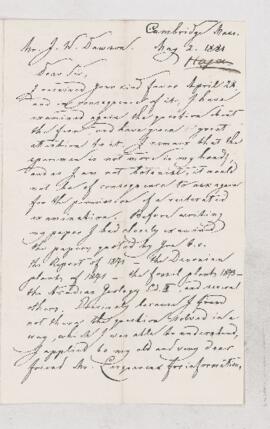 Cambridge Mass.
Mr. J. W. Dawson. May 2. 1881
Hagen
Dear Sir,
I received your kind favor April 28
and in consequence of it, I have
examined again the question about
the fern and have given great
attention to it. I remark that the
specimen is not more in my hand,
and as I am not botanist, it would
not be of consequence to ask again
for the permission of a reiterated
examination. Before writing
my paper I had closely examined
the papers quoted by you &c.
the Report of 1871 — the Devonian
plants of 1871 — the fossil plants 1873 —
the Acadian Geology Ed. II and several
others. Precisely because I found
not there the question solved in a
way, which I was able to understand,
I applied to my old and very dear
friend Mr. for information,